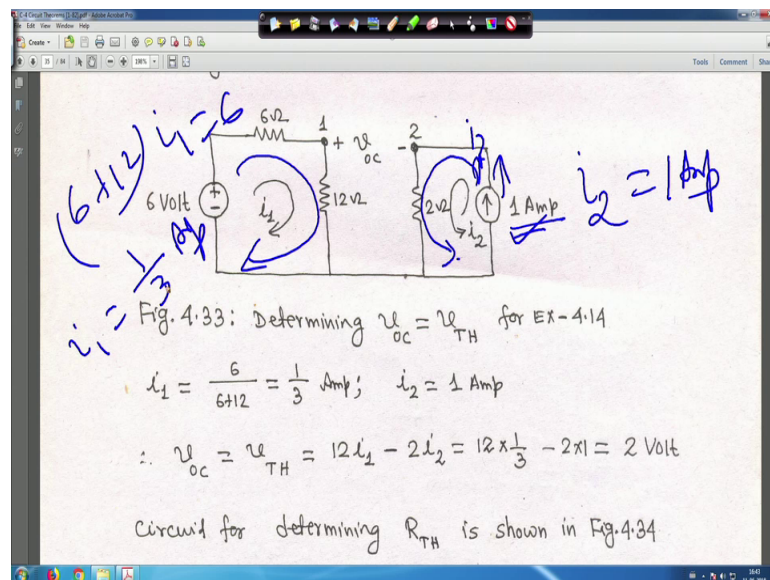 C-4 Circuit Theorems [1-82].pdf - Adobe Acrobat Pro
File Edit View Window Help
Create
35 / 84
100%
Tools Comment Share
(6+12) i₁ = 6
i₁ = 1/3 Amp
6Ω
1
+ v_OC -
2
i₂
6 Volt
i₁
12Ω
2Ω
i₂
1 Amp
i₂ = 1 Amp
Fig. 4.33: Determining v_OC = v_TH for EX-4.14
i₁ = 6/(6+12) = 1/3 Amp; i₂ = 1 Amp
∴ v_OC = v_TH = 12i₁ - 2i₂ = 12×1/3 - 2×1 = 2 Volt
Circuid for determining R_TH is shown in Fig.4.34
16:43